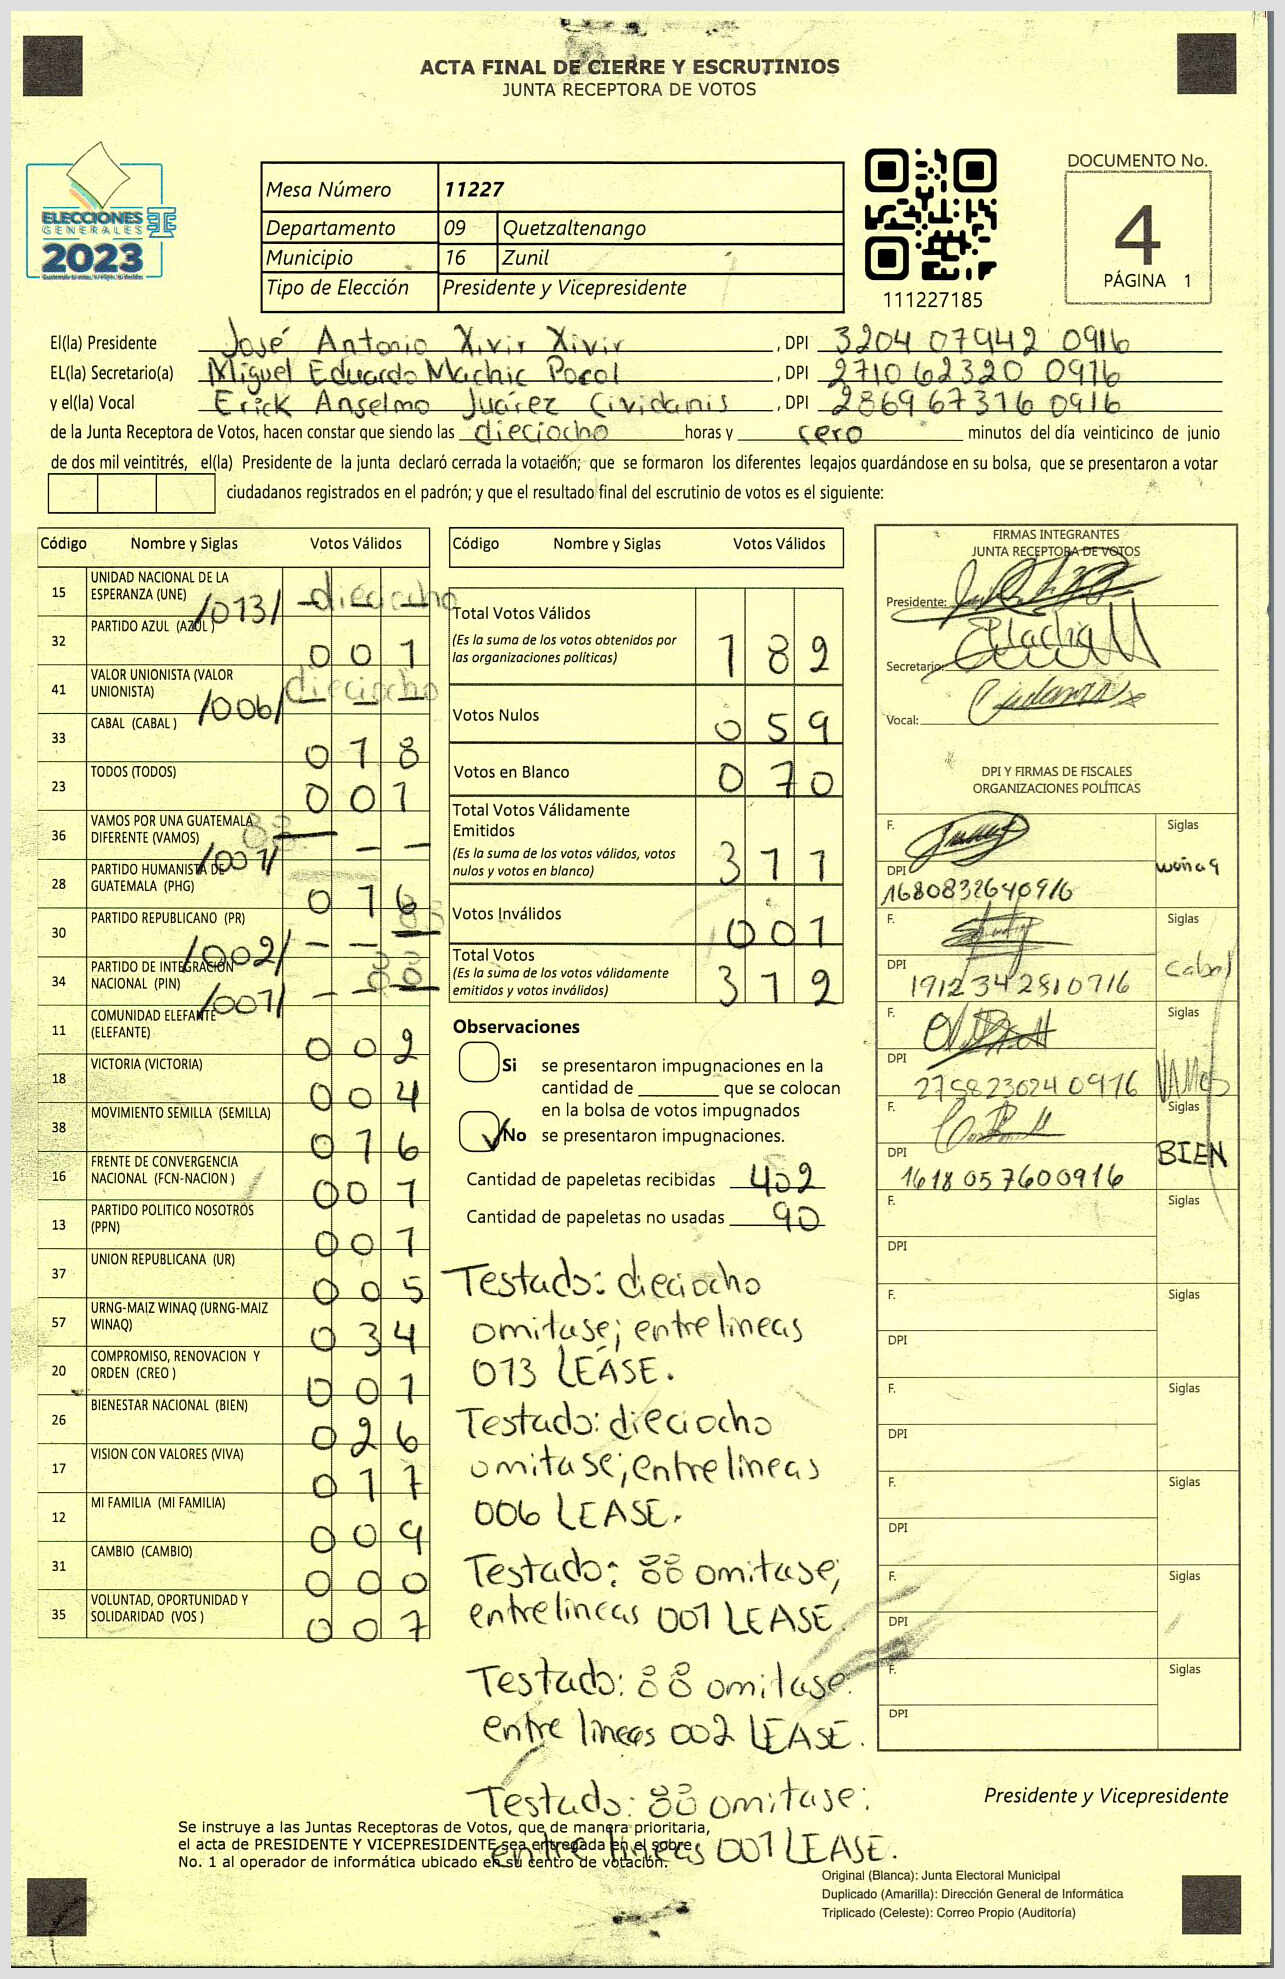 ACTA FINAL DE CIERRE Y ESCRUTINIOS
JUNTA RECEPTORA DE VOTOS
ELECCIONES
GENERALES
2023
Mesa Número 11227
Departamento 09 Quetzaltenango
Municipio 16 Zunil
Tipo de Elección Presidente y Vicepresidente
111227185
DOCUMENTO No.
4
PÁGINA 1
El(la) Presidente José Antonio Xivir Xivir, DPI 3204 07942 0916
EL(la) Secretario(a) Miguel Eduardo Machic Pocol, DPI 2710 62320 0916
y el(la) Vocal Erick Anselmo Juárez Cividanis, DPI 2869 67316 0916
de la Junta Receptora de Votos, hacen constar que siendo las dieciocho horas y cero minutos del día veinticinco de junio
de dos mil veintitrés, el(la) Presidente de la junta declaró cerrada la votación; que se formaron los diferentes legajos guardándose en su bolsa, que se presentaron a votar
ciudadanos registrados en el padrón; y que el resultado final del escrutinio de votos es el siguiente:
Código Nombre y Siglas Votos Válidos
15 UNIDAD NACIONAL DE LA ESPERANZA (UNE) /013/ dieciocho
32 PARTIDO AZUL (AZUL) 001
41 VALOR UNIONISTA (VALOR UNIONISTA) /006/ dieciocho
33 CABAL (CABAL ) 018
23 TODOS (TODOS) 001
36 VAMOS POR UNA GUATEMALA DIFERENTE (VAMOS) /001/ 88
28 PARTIDO HUMANISTA DE GUATEMALA (PHG) 016
30 PARTIDO REPUBLICANO (PR) /002/ 88
34 PARTIDO DE INTEGRACIÓN NACIONAL (PIN) /001/ 88
11 COMUNIDAD ELEFANTE (ELEFANTE) 002
18 VICTORIA (VICTORIA) 004
38 MOVIMIENTO SEMILLA (SEMILLA) 016
16 FRENTE DE CONVERGENCIA NACIONAL (FCN-NACION ) 001
13 PARTIDO POLITICO NOSOTROS (PPN) 001
37 UNION REPUBLICANA (UR) 005
57 URNG-MAIZ WINAQ (URNG-MAIZ WINAQ) 034
20 COMPROMISO, RENOVACION Y ORDEN (CREO ) 001
26 BIENESTAR NACIONAL (BIEN) 026
17 VISION CON VALORES (VIVA) 017
12 MI FAMILIA (MI FAMILIA) 009
31 CAMBIO (CAMBIO) 000
35 VOLUNTAD, OPORTUNIDAD Y SOLIDARIDAD (VOS ) 007
Código Nombre y Siglas Votos Válidos
Total Votos Válidos
(Es la suma de los votos obtenidos por
las organizaciones políticas) 182
Votos Nulos 059
Votos en Blanco 070
Total Votos Válidamente
Emitidos
(Es la suma de los votos válidos, votos
nulos y votos en blanco) 311
Votos Inválidos 001
Total Votos
(Es la suma de los votos válidamente
emitidos y votos inválidos) 312
Observaciones
Si se presentaron impugnaciones en la
cantidad de ________ que se colocan
en la bolsa de votos impugnados
No se presentaron impugnaciones.
Cantidad de papeletas recibidas 402
Cantidad de papeletas no usadas 90
Testado: dieciocho
omitase; entre lineas
013 LEASE.
Testado: dieciocho
omitase; entre lineas
006 LEASE.
Testado: 88 omitase;
entre lineas 001 LEASE
Testado: 88 omitase.
entre lineas 002 LEASE.
Testado: 88 omitase:
entre lineas 001 LEASE.
FIRMAS INTEGRANTES
JUNTA RECEPTORA DE VOTOS
Presidente:
Secretario:
Vocal:
DPI Y FIRMAS DE FISCALES
ORGANIZACIONES POLÍTICAS
F. Siglas
DPI 1680832640916 winaq
F. Siglas
DPI 1912342810916 Cabal
F. Siglas
DPI 2758230240916 VAMOS
F. Siglas
DPI 1618057600916 BIEN
F. Siglas
DPI
F. Siglas
DPI
F. Siglas
DPI
F. Siglas
DPI
F. Siglas
DPI
F. Siglas
DPI
Presidente y Vicepresidente
Se instruye a las Juntas Receptoras de Votos, que de manera prioritaria,
el acta de PRESIDENTE Y VICEPRESIDENTE sea entregada en el sobre
No. 1 al operador de informática ubicado en su centro de votación.
Original (Blanca): Junta Electoral Municipal
Duplicado (Amarilla): Dirección General de Informática
Triplicado (Celeste): Correo Propio (Auditoría)